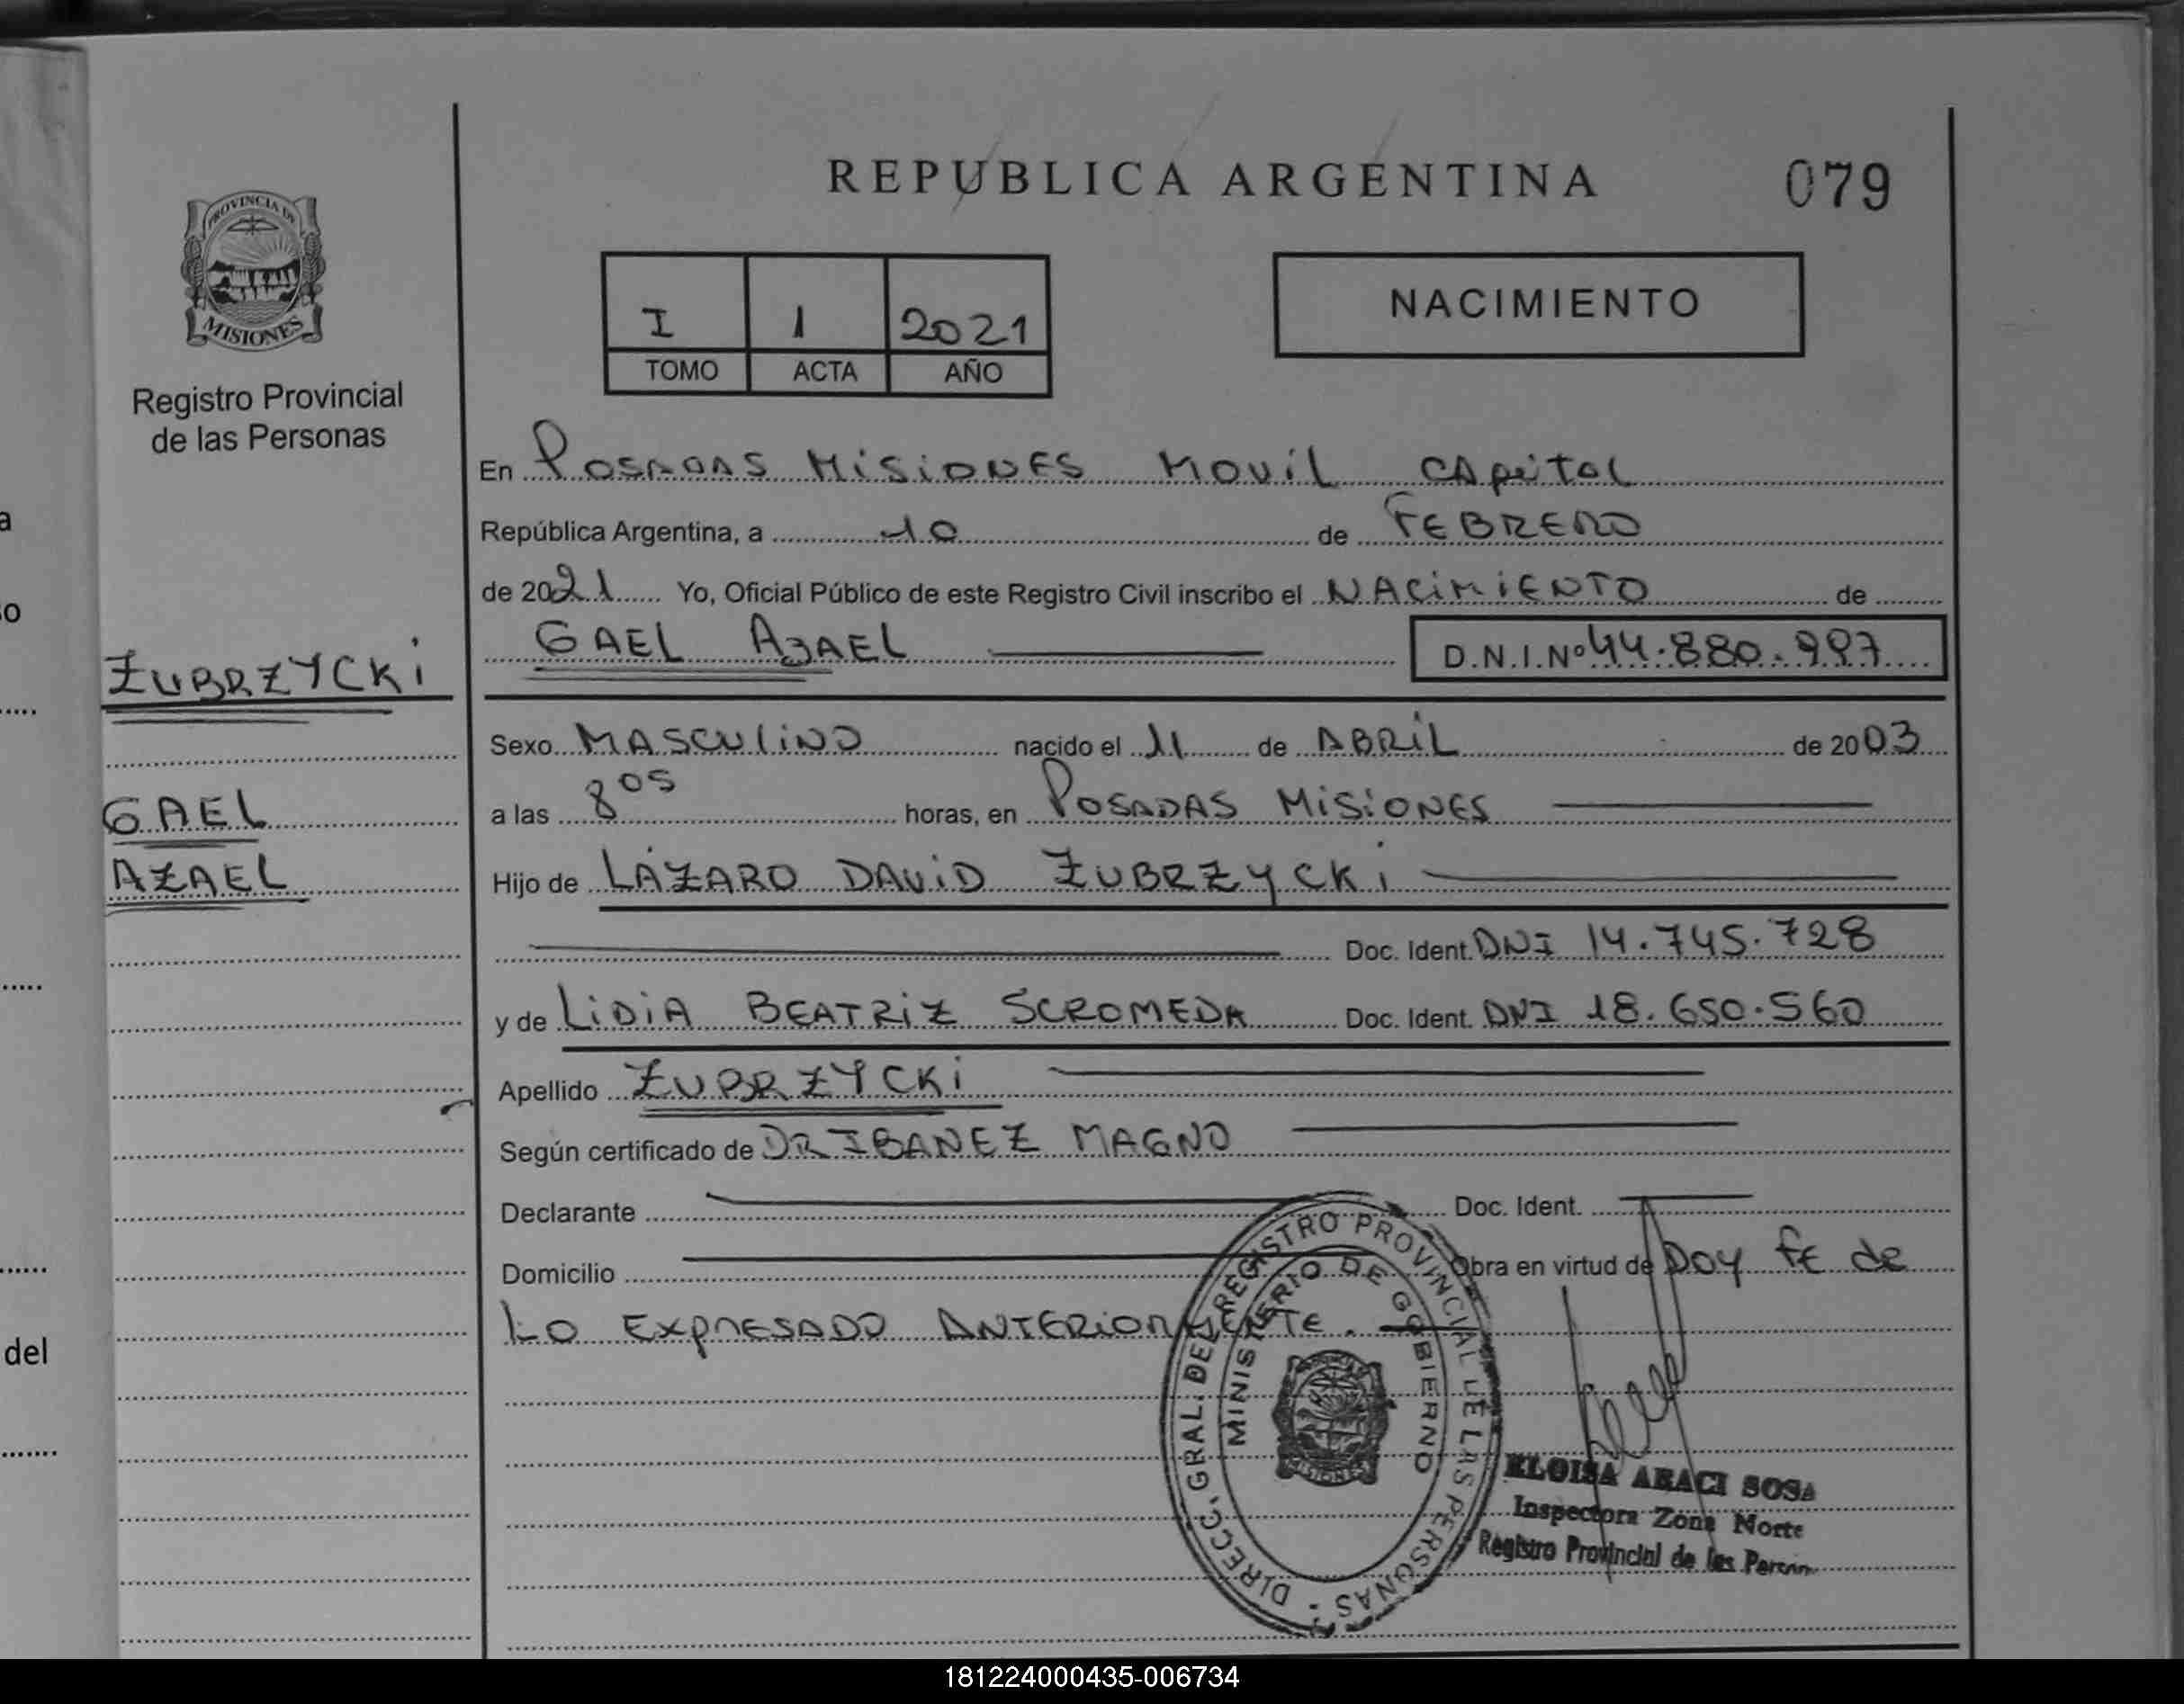 REPUBLICA ARGENTINA
079
PROVINCIA DE
MISIONES
Registro Provincial
de las Personas
I 1 2021
TOMO ACTA AÑO
NACIMIENTO
En Posadas Misiones Movil Capital
República Argentina, a 10 de FEBRERO
de 2021 Yo, Oficial Público de este Registro Civil inscribo el NACIMIENTO de
GAEL AZAEL D.N.I.Nº 44.880.997
ZUBRZYCKI
Sexo MASCULINO nacido el 11 de ABRIL de 2003
a las 8 05 horas, en POSADAS MISIONES
GAEL
AZAEL
Hijo de LÁZARO DAVID ZUBRZYCKI
Doc. Ident. DNI 14.745.728
y de LIDIA BEATRIZ SCROMEDA Doc. Ident. DNI 18.650.560
Apellido ZUBRZYCKI
Según certificado de DR IBANEZ MAGNO
Declarante Doc. Ident.
Domicilio Obra en virtud de Doy FE de
Lo EXPRESADO ANTERIORMENTE.
DIRECC. GRAL. DEL REGISTRO PROVINCIAL DE LAS PERSONAS
MINISTERIO DE GOBIERNO
MISIONES
ELOISA ARACI SOSA
Inspectora Zona Norte
Registro Provincial de las Person
a
del
181224000435-006734